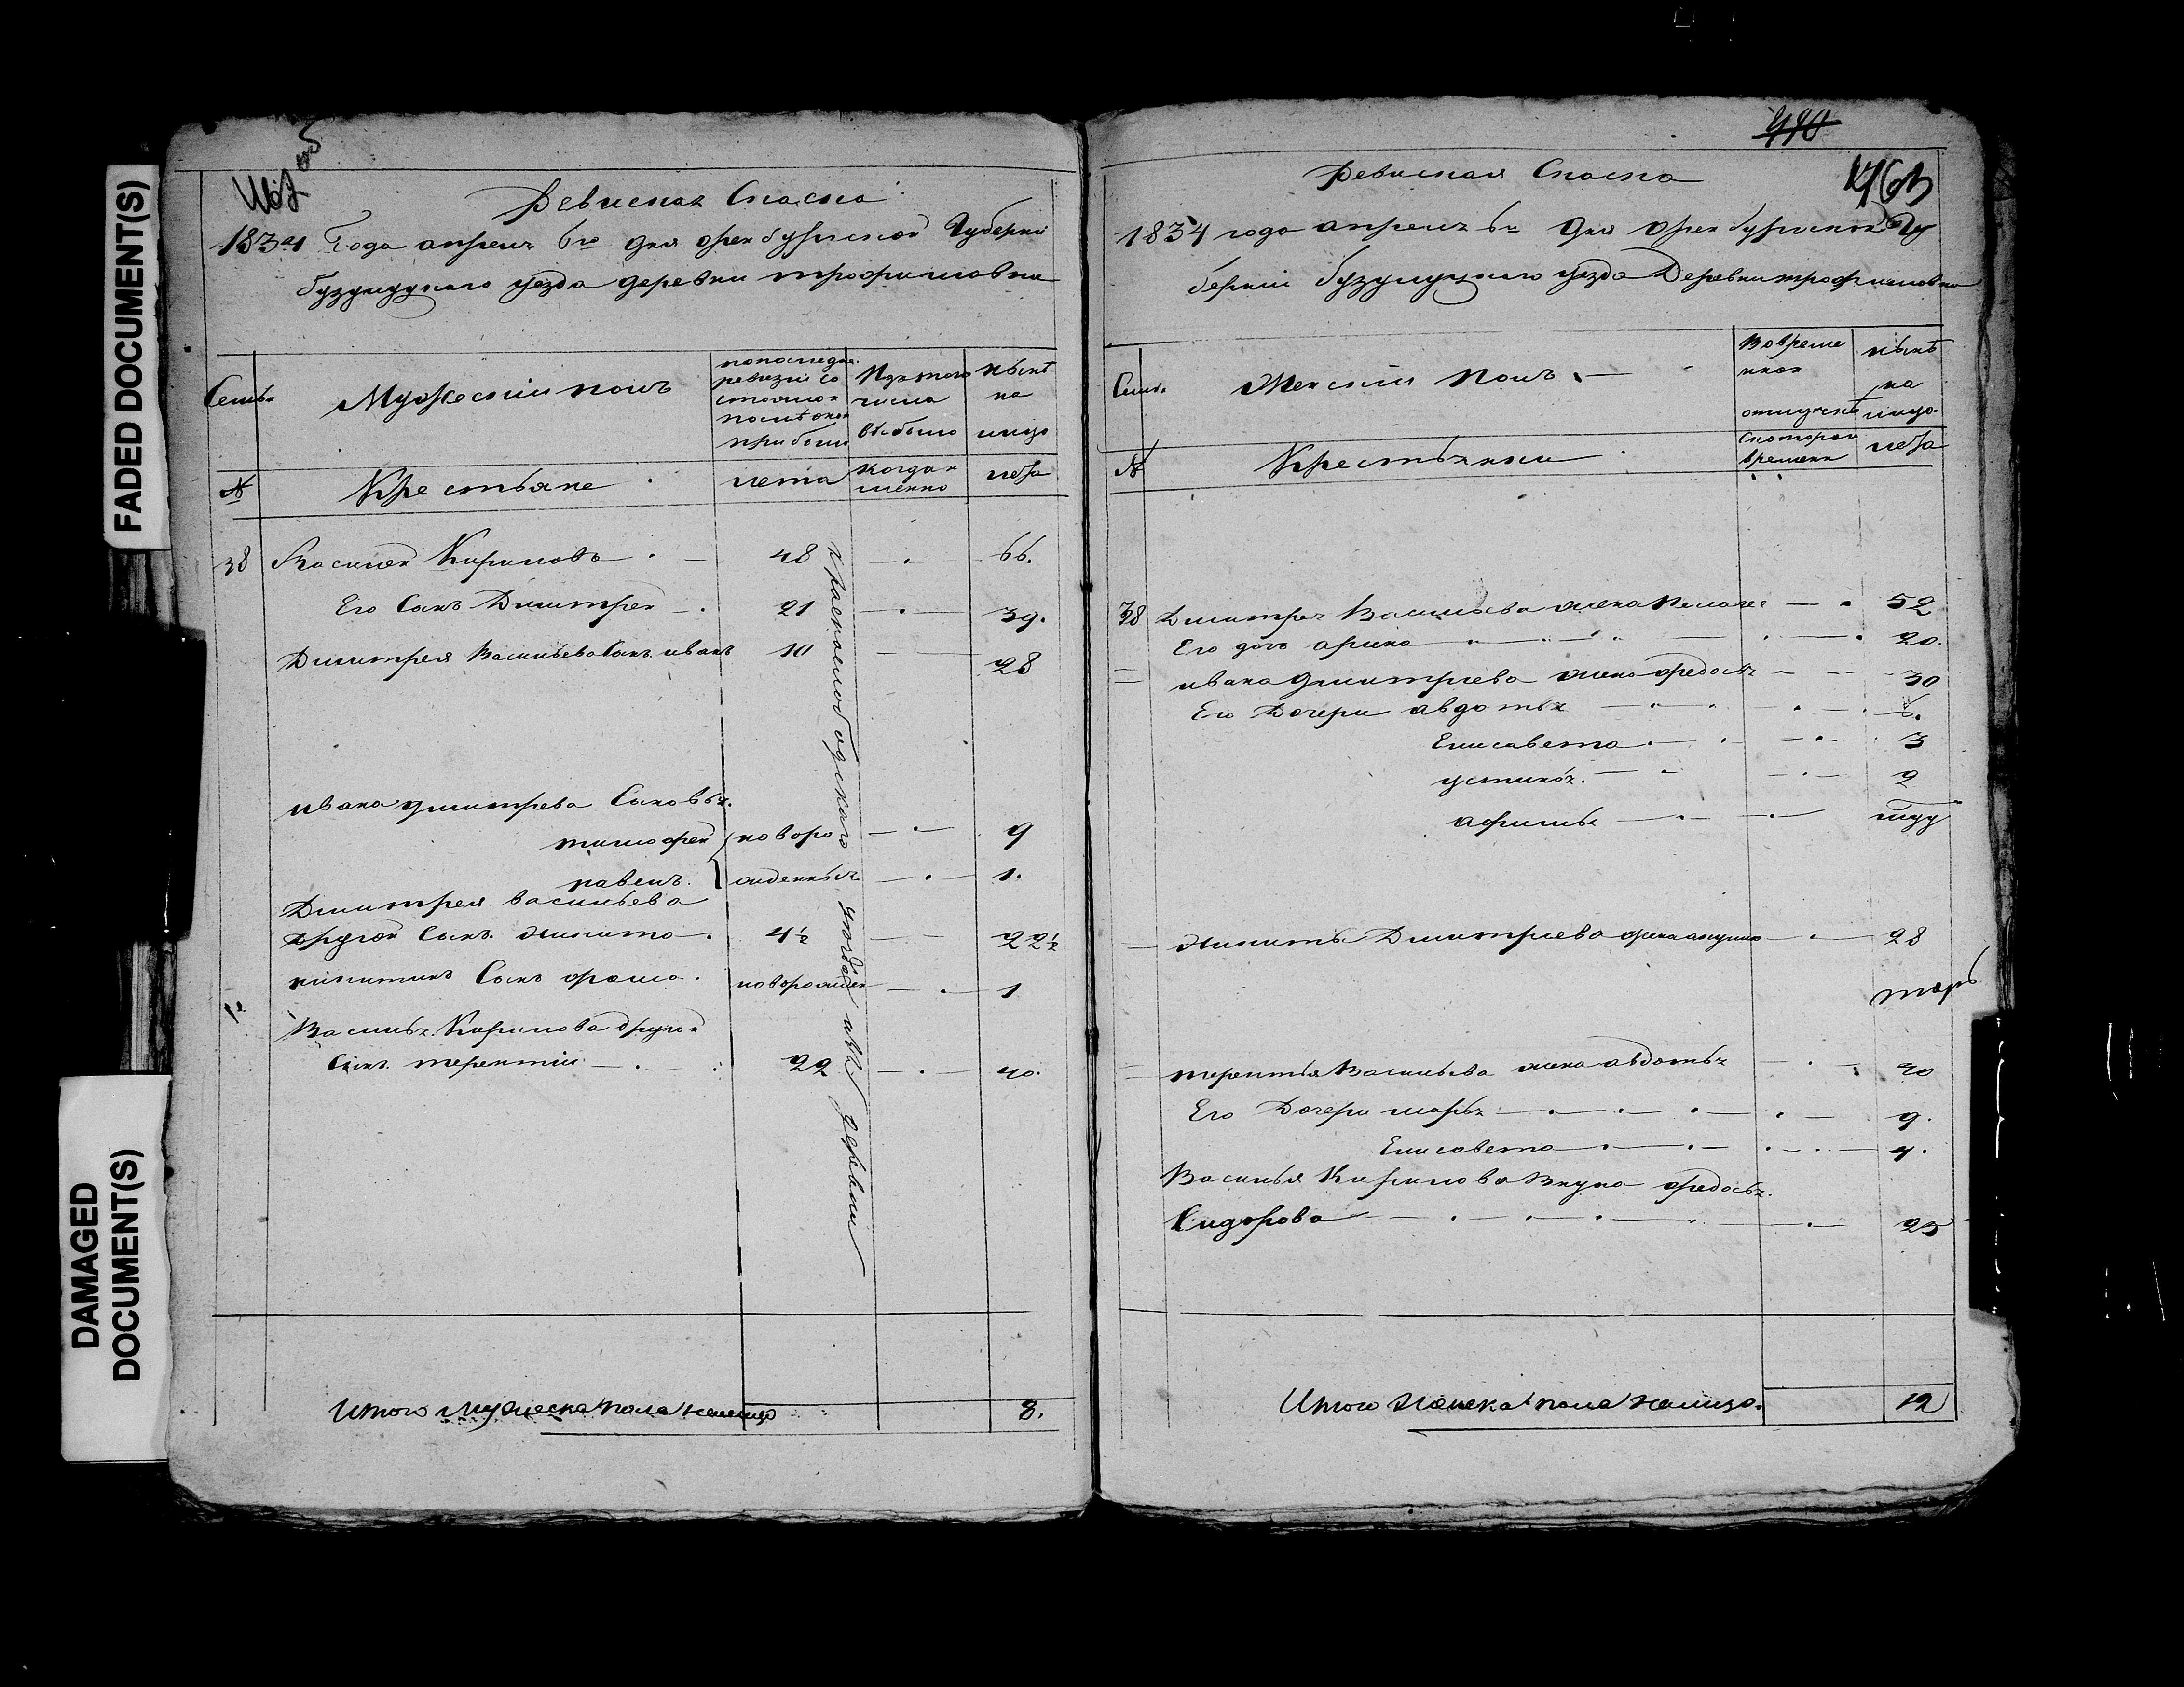 FADED DOCUMENT(S)
DAMAGED
DOCUMENT(S)
Ревиская Скаска
1834 Года апреля 6го дня оренбургской Губерни
бузулуцкаго уезда деревни трофимовки
Семьи
Мужеский полъ
попоследн.
ревизии со
стояло и
послѣ оной
прибыло
Изтого
числа
выбыло
нынѣ
на
лицо
№
Крестьяне
лета
когда и
менно
лета
38 Василей Кириловъ 48 66.
Его Сынъ Дмитрей 21 39.
Дмитрея Васильева Сынъ иванъ 10 28
ивана дмитрева Сыновья
тимофей новоро 9
павелъ. жденныя 1.
Дмитрея васильева
другой Сынъ никита 4½ 22½
никитинъ Сынъ фрола новорожден 1
Василья Кирилова другой
Сынъ терентий 22 40.
краснослободскаго уезда деревни
Итого мужеска пола налицо 8.
490
Ревиская Скаска
1834 года апреля 6го дня оренбургской Гу
берний бузулуцкаго уезда Деревни трофимовки
Семьи
Женский полъ
Вовреме
нной
отлучкѣ
нынѣ
на
лицо
№
Крестьянки
Скоторого
времени
лета
38 Дмитрея Васильева жена Пелагея 52
Его дочь арина 20.
ивана дмитриева жена федосья 30
Его Дочери авдотья 6.
Елисавета 3
устинья 2
афимья
никиты Дмитриева жена акулина 28
терентья Васильева жена авдотья 40
Его Дочери марья 9.
Елисавета 4.
Василья Кирилова внука федосья
Сидорова 23
Итого Женска пола налицо. 12